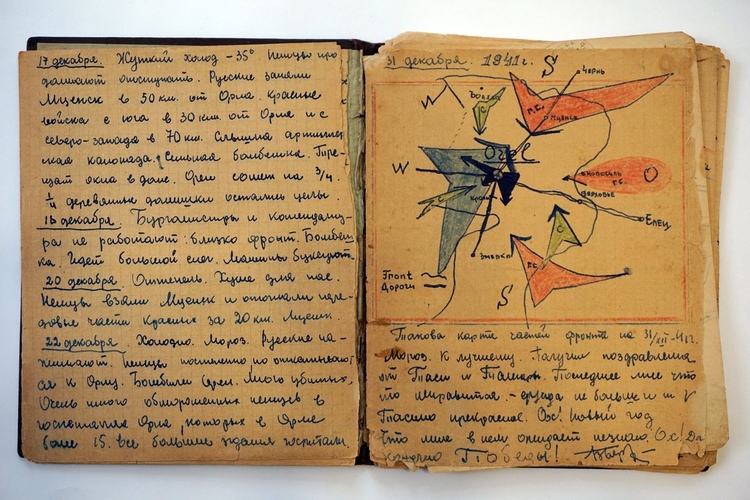 17 декабря. Жуткий холод -35° Немцы про
должают отступать. Русские заняли
Мценск в 50 км. от Орла. Красные
войска с юга в 30 км. от Орла и с
северо-запада в 70 км. Слышна артиллер
ская канонада. Сильная бомбежка. Тре-
щат окна в доме. Орел сожжен на 3/4.
1/4 деревянные домишки остались целы.
18 декабря. Бургомистры и комендату-
ра не работают: близко фронт. Бомбеж
ка. Идет большой снег. Машины буксуют.
20 декабря. Оттепель. Хуже для нас.
Немцы взяли Мценск и отогнали пере-
довые части Красных за 20 км. Мценск.
22 декабря. Холодно. Мороз. Русские на-
жимают. Немцы постепенно
ся к Орлу. Бомбили Орел. Много убитых.
Очень много обмороженных немцев в
госпиталях Орла, которых в Орле
более 15. Все большие здания госпитали.
31 декабря. 1941 г.
S
Чернь
W
Волхов
Г.С.
г. Мценск
Orel
W
Кромы
Новосиль
Г.С.
O
Верховье
Елец
Змевка
Г.С.
Front
Дороги
S
Такова карта частей фронта на 31/XII-41 г.
Мороз. К лучшему. Получил поздравления
от Таси и Тамары. Последнее мне что
то нравится. - ерунда не больше и
Письмо прекрасное. Ох! Новый год
Что мне в нем ожидает не знаю. Ох! Да
конечно Победы!